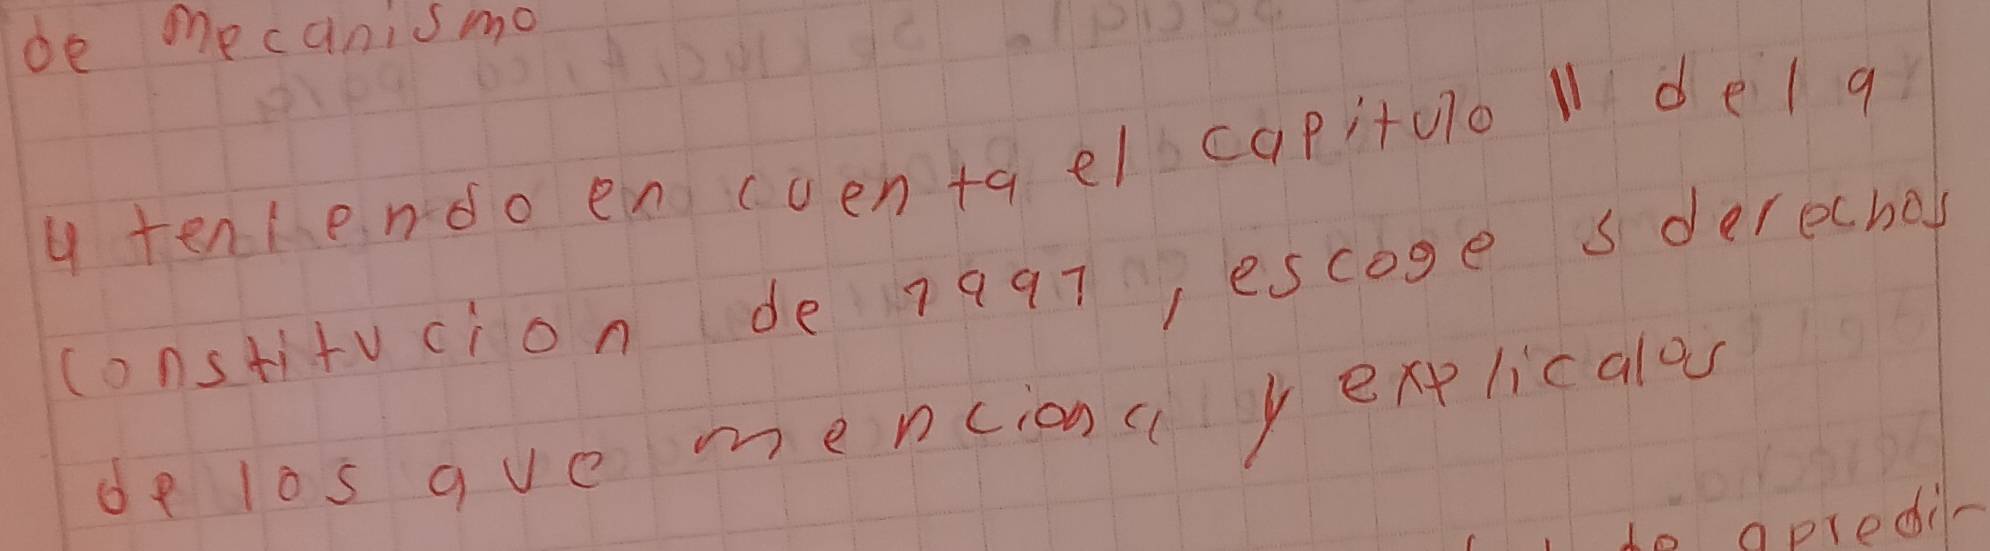 de mecanismo
4 teniendo en cuenta el capitulo II de la
constitucion de 1991, escoge 5 derechos
de los que menciona y explicalos